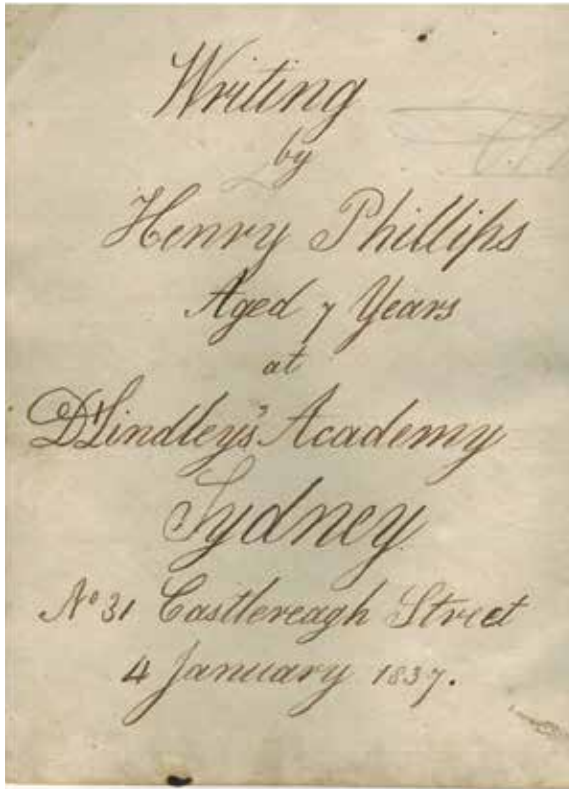 Writing
by
Henry Phillips
Aged 7 Years
at
D Lindley's Academy
Sydney
No 31 Castlereagh Street
4 January 1837.